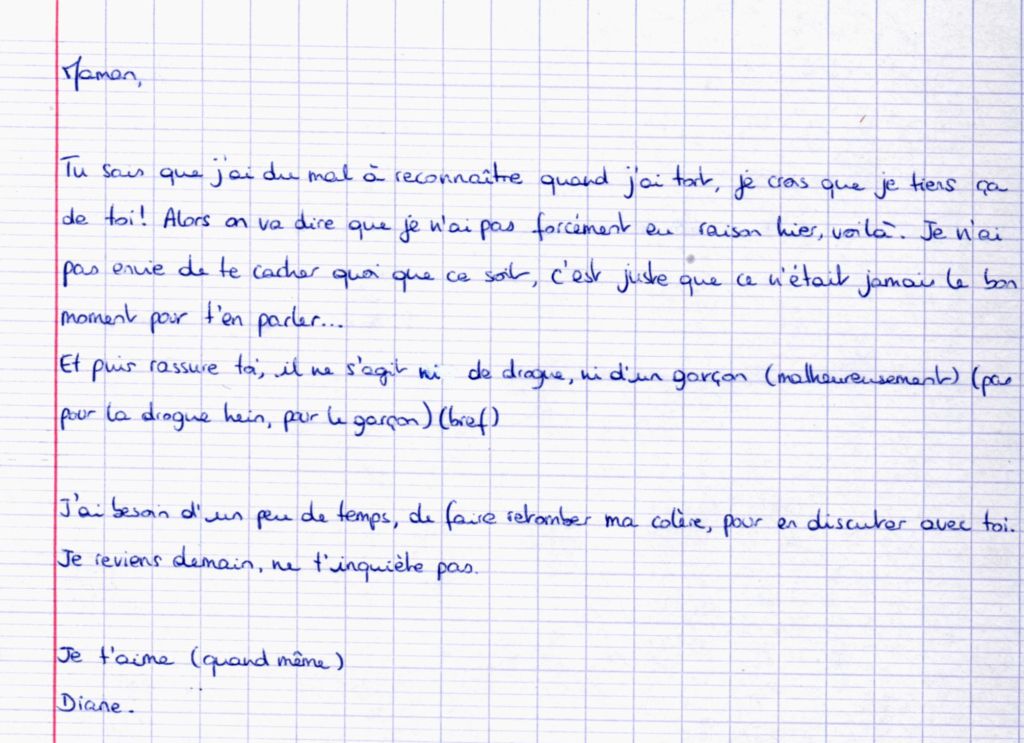 Maman,
Tu sais que j'ai du mal à reconnaître quand j'ai tort, je crois que je tiens ça
de toi! Alors on va dire que je n'ai pas forcément eu raison hier, voilà. Je n'ai
pas envie de te cacher quoi que ce soit, c'est juste que ce n'était jamais le bon
moment pour t'en parler...
Et puis rassure toi, il ne s'agit ni de drogue, ni d'un garçon (malheureusement) (pas
pour la drogue hein, pour le garçon) (bref)
J'ai besoin d'un peu de temps, de faire retomber ma colère, pour en discuter avec toi.
Je reviens demain, ne t'inquiète pas.
Je t'aime (quand même)
Diane.